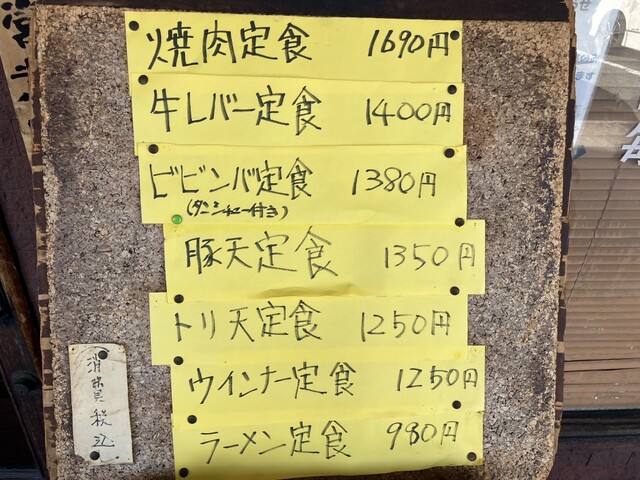 焼肉定食 1690円
牛レバー定食 1400円
ビビンバ定食 1380円
豚天定食 1350円
トリ天定食 1250円
ウインナー定食 1250円
ラーメン定食 980円
消費税込